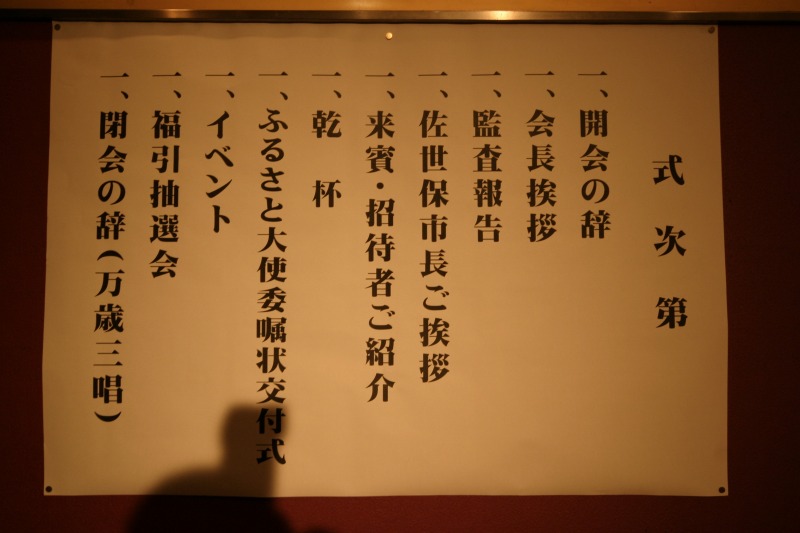 式次第
一、開会の辞
一、会長挨拶
一、監査報告
一、佐世保市長ご挨拶
一、来賓・招待者ご紹介
一、乾杯
一、ふるさと大使委嘱状交付式
一、イベント
一、福引抽選会
一、閉会の辞(万歳三唱)